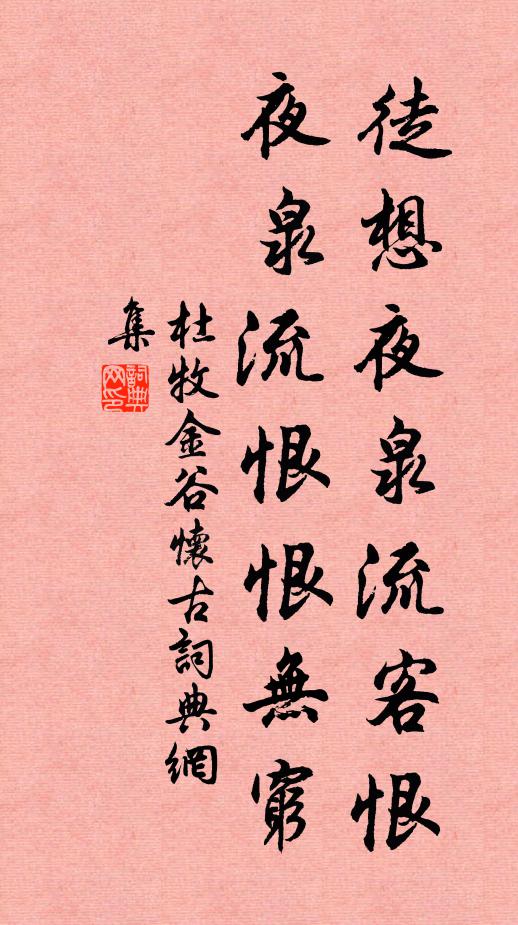 徒想夜泉流客恨
夜泉流恨恨無窮
杜牧金谷懷古詞典網
集
詞典網印